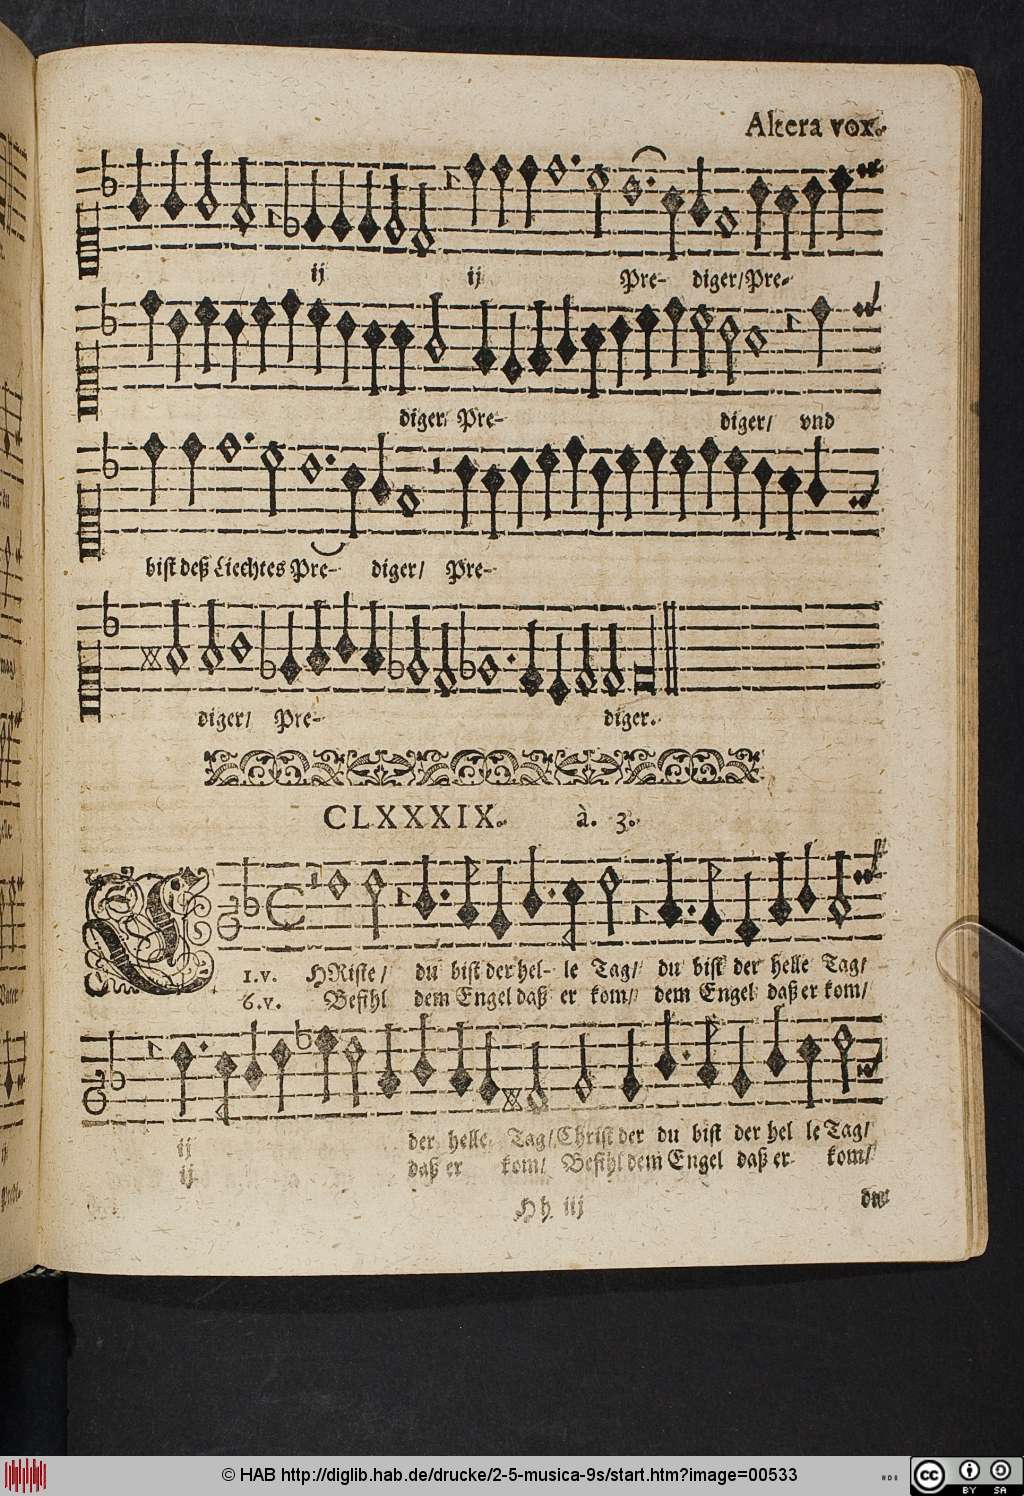 Altera vox.
ij ij Pre- diger/Pre-
diger/ Pre- diger/ vnd
bist deß Liechtes Pre- diger/ Pre-
diger/ Pre- diger.
CLXXXIX. à. 3.
1.v. CHRiste/ du bist der hel- le Tag/ du bist der helle Tag/
6.v. Befihl dem Engel daß er kom/ dem Engel daß er kom/
ij der helle Tag/Christ der du bist der hel le Tag/
ij daß er kom/ Befihl dem Engel daß er kom/
Hh iij du
© HAB http://diglib.hab.de/drucke/2-5-musica-9s/start.htm?image=00533
cc BY SA